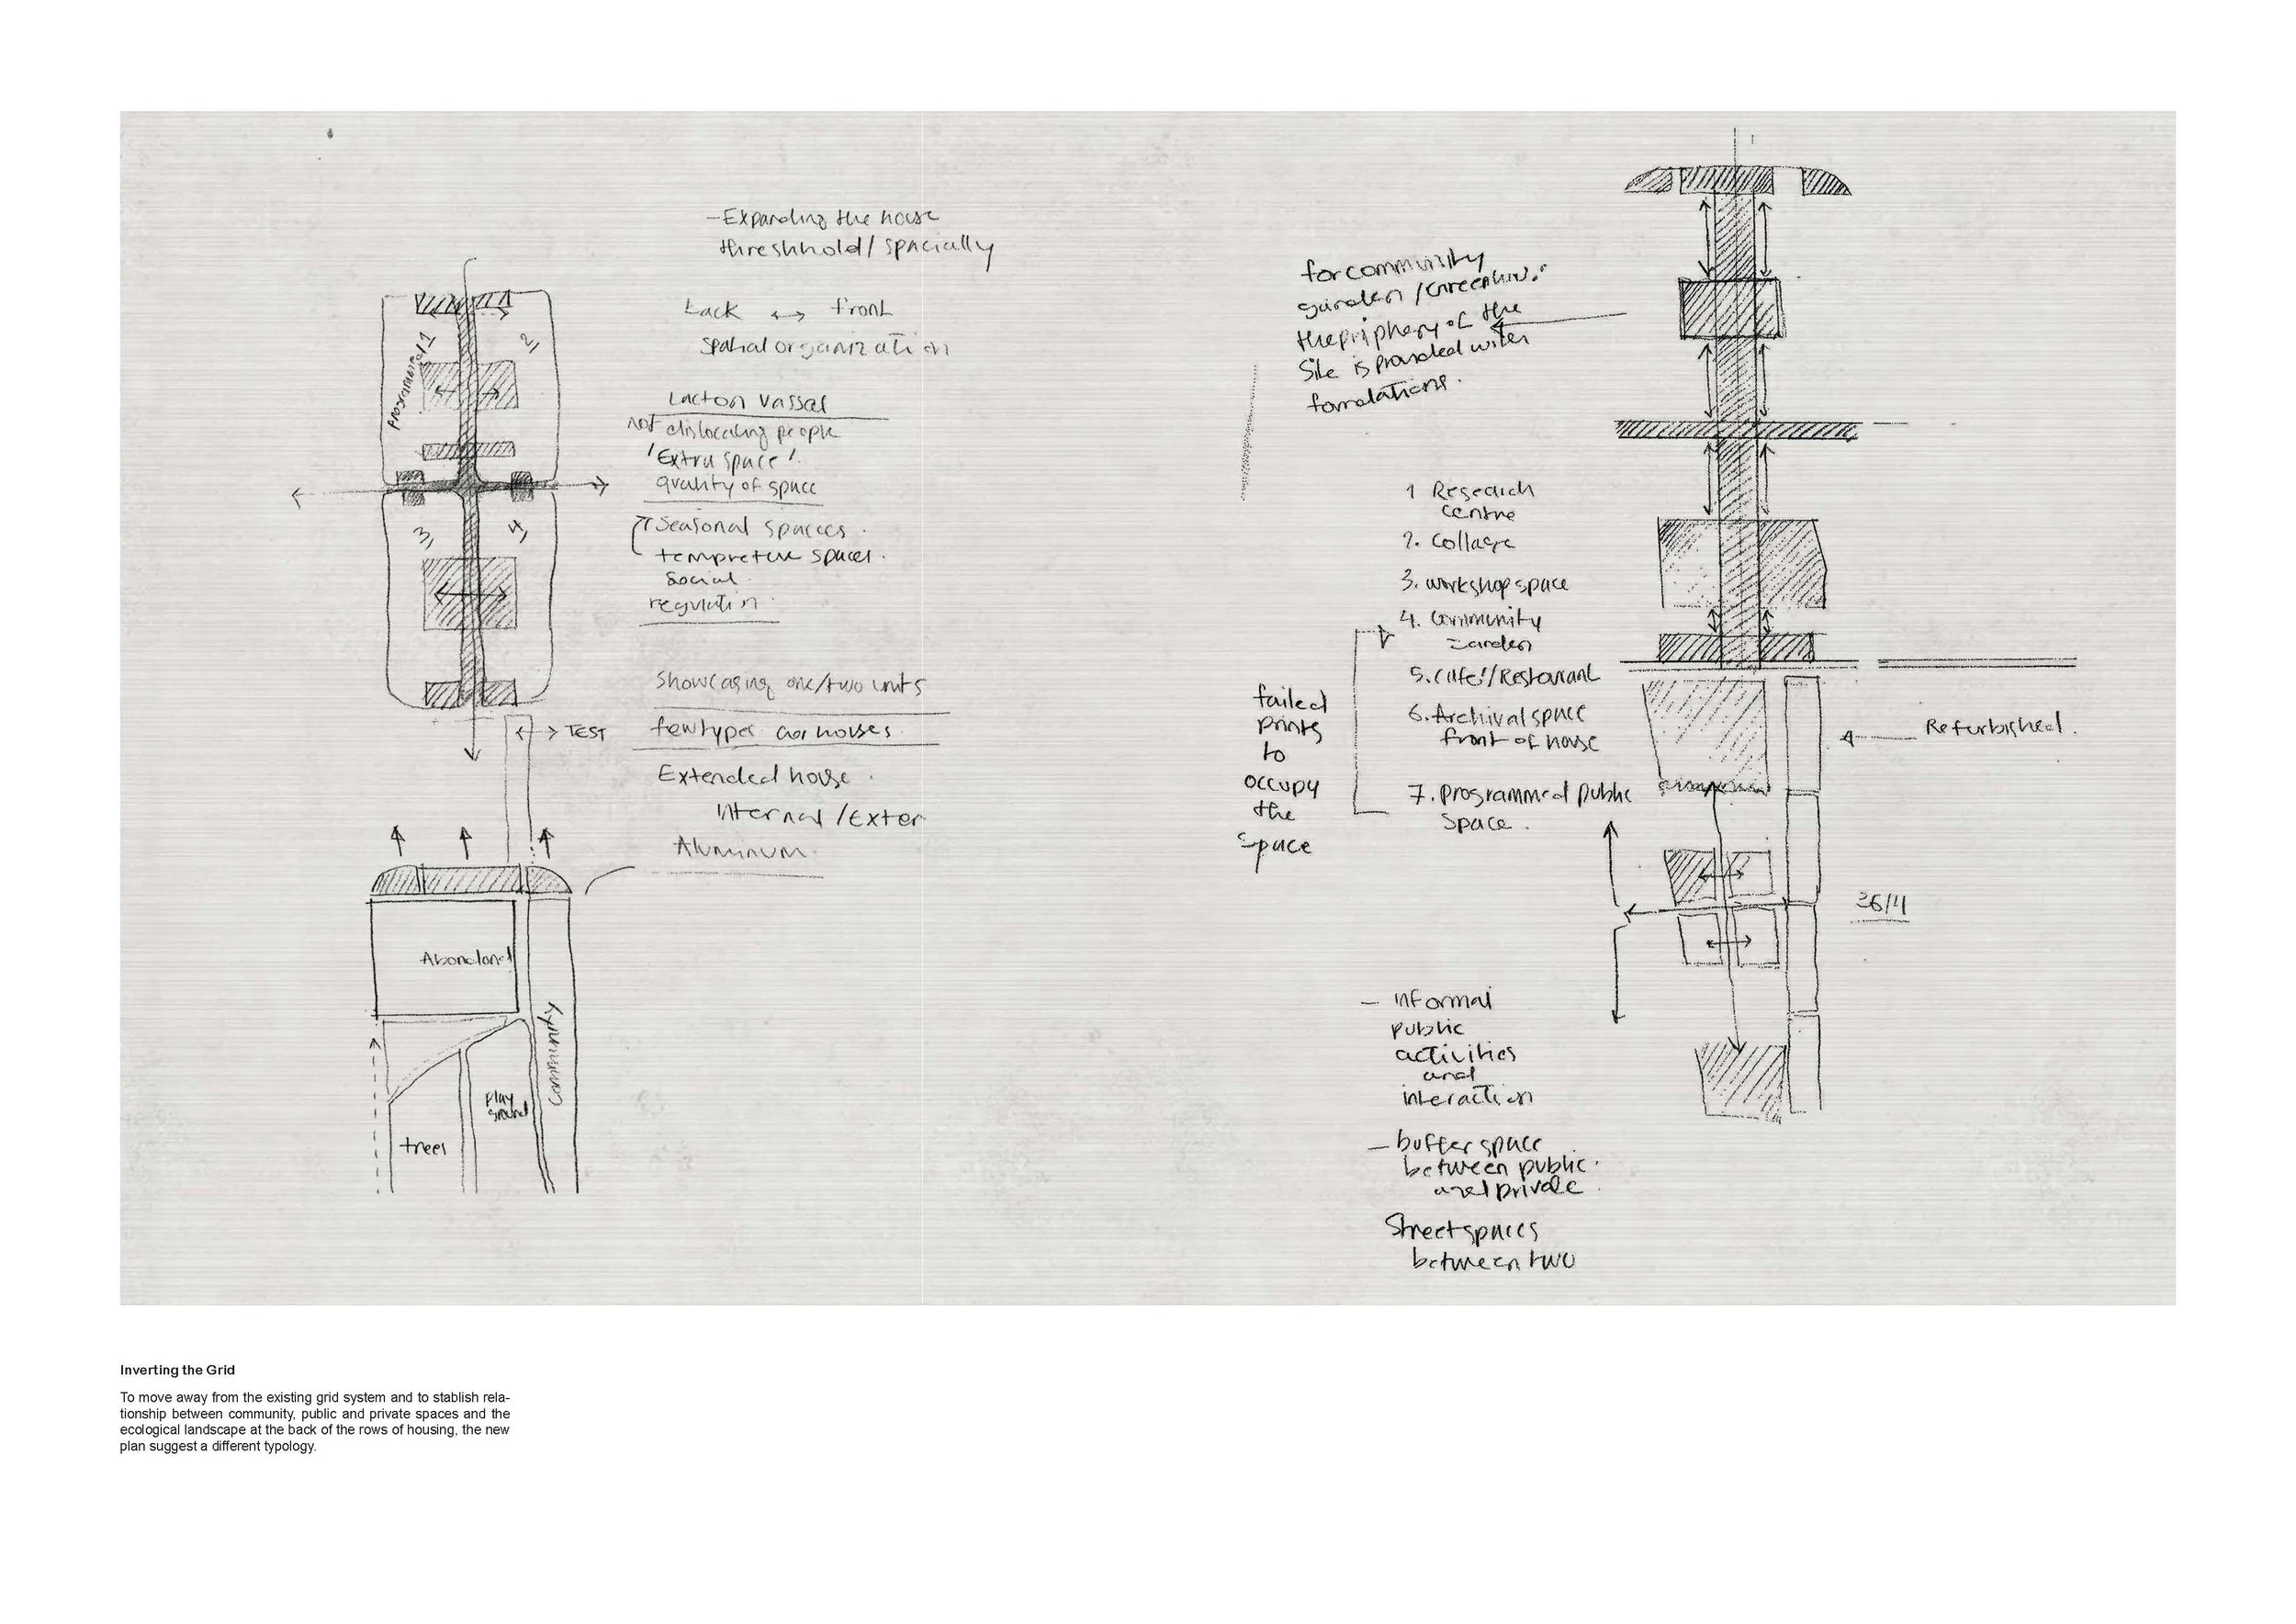 -Expanding the house
threshhold/ spacially
Lack ↔ front
spatial organization
Lacton Vassal
not dislocating people
'Extra space'.
quality of space
Seasonal spaces.
tempreture spaces.
Social
regulation
Showcasing one/two units
few types houses
Extended house.
Internal /Exter
Aluminum.
Programme
1
2,
3,
4,
TEST
Abondond
Community
Play
ground
trees
for community
garden /Greenhouse
the periphery of the
Site is provided with
1 Research
centre
2. Collage
3. workshop space
4. Community
Garden
5. Cafe/Restaurant
6. Archival space
front of house
7. programmed public
space.
failed
prints
to
occupy
the
space
Refurbished.
- informal
public
activities
and
interaction
- buffer space
between public.
and private.
Street spaces
between two
Inverting the Grid
To move away from the existing grid system and to stablish rela-
tionship between community, public and private spaces and the
ecological landscape at the back of the rows of housing, the new
plan suggest a different typology.